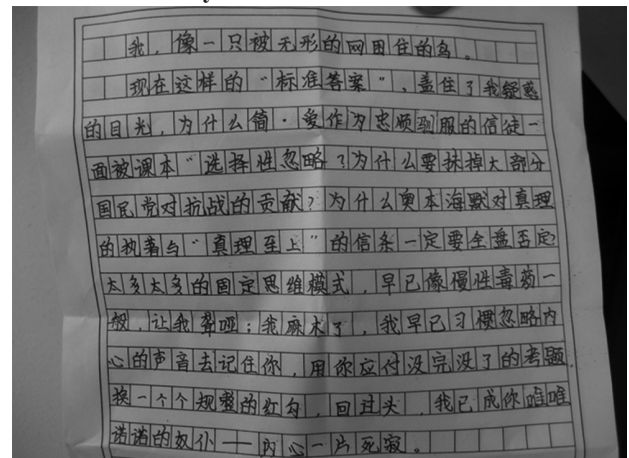 我，像一只被无形的网困住的鸟。
现在这样的“标准答案”，盖住了我疑惑
的目光，为什么简·爱作为忠顺驯服的信徒一
面被课本“选择性忽略”？为什么要抹掉大部分
国民党对抗战的贡献？为什么奥本海默对真理
的执著与“真理至上”的信条一定要全盘否定？
太多太多的固定思维模式，早已像慢性毒药一
般，让我聋哑；我麻木了，我早已习惯忽略内
心的声音去记住你，用你应付没完没了的考题
换一个个规整的红勾，回过头，我已成你唯唯
诺诺的奴仆——内心一片死寂。